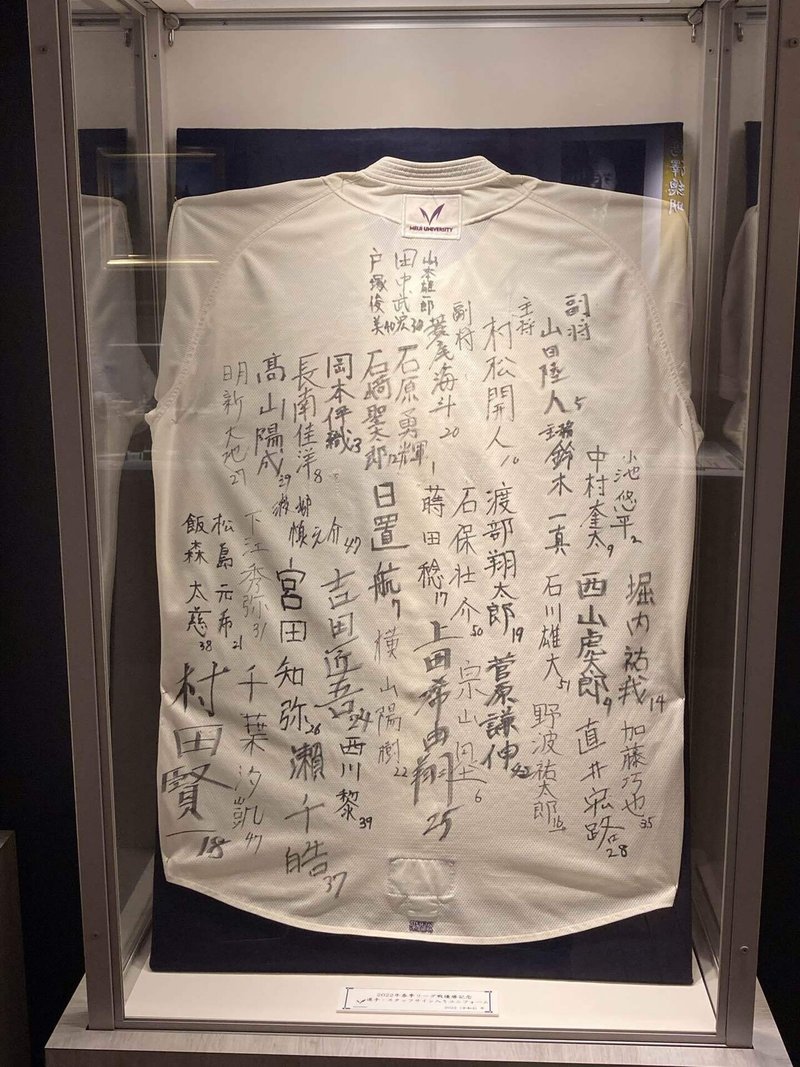 MEIJI UNIVERSITY
副将
山田陸人 5
主将
村松開人 10
副将
蓑尾海斗 20
山本雄一郎
田中武宏 30
戸塚俊美 40
小池悠平 2
中村奎太 9
主務 鈴木一真
石原勇輝 1
石崎聖太郎 12
岡本伊織 13
長南佳洋 8
髙山陽成 39
明新大地 27
堀内祐我 14
西山虎太郎 9
石川雄大 51
渡部翔太郎 19
石保壮介 50
蒔田稔 17
日置航 7
下江秀弥 31
松島元希 21
飯森太慈 38
加藤巧也 35
直井宏路 28
野波祐太郎 16
菅原謙伸 42
宗山塁 6
上田希由翔 25
横山陽樹 22
吉田匠吾 24
宮田知弥 26
西川黎 39
瀬千皓 37
千葉汐凱 47
村田賢一 18
2022年春季リーグ戦優勝記念
選手・スタッフサイン入りユニフォーム